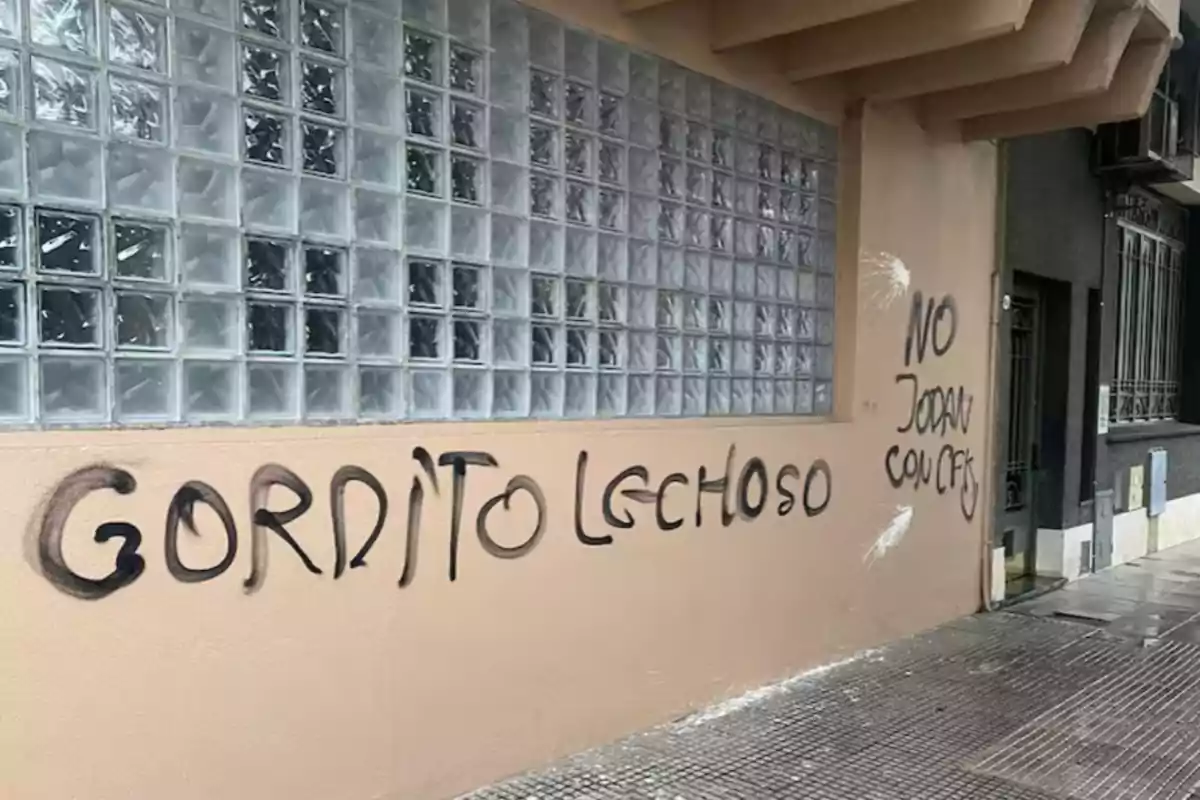 GORDITO LECHOSO
NO
JODAN
CON CFK